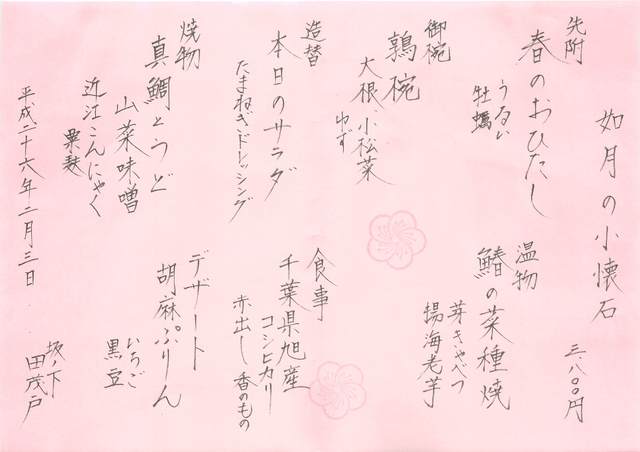 如月の小懐石
三、八〇〇円
先附
春のおひたし
うるい
牡蠣
御椀
鶉椀
大根、小松菜
ゆず
造替
本日のサラダ
たまねぎ・ドレッシング
焼物
真鯛とうど
山菜味噌
近江こんにゃく
粟麸
温物
鰆の菜種焼
芽きゃべつ
揚海老芋
食事
千葉県旭産
コシヒカリ
赤出し 香のもの
デザート
胡麻ぷりん
いちご
黒豆
平成二十六年二月三日
坂ノ下
田茂戸